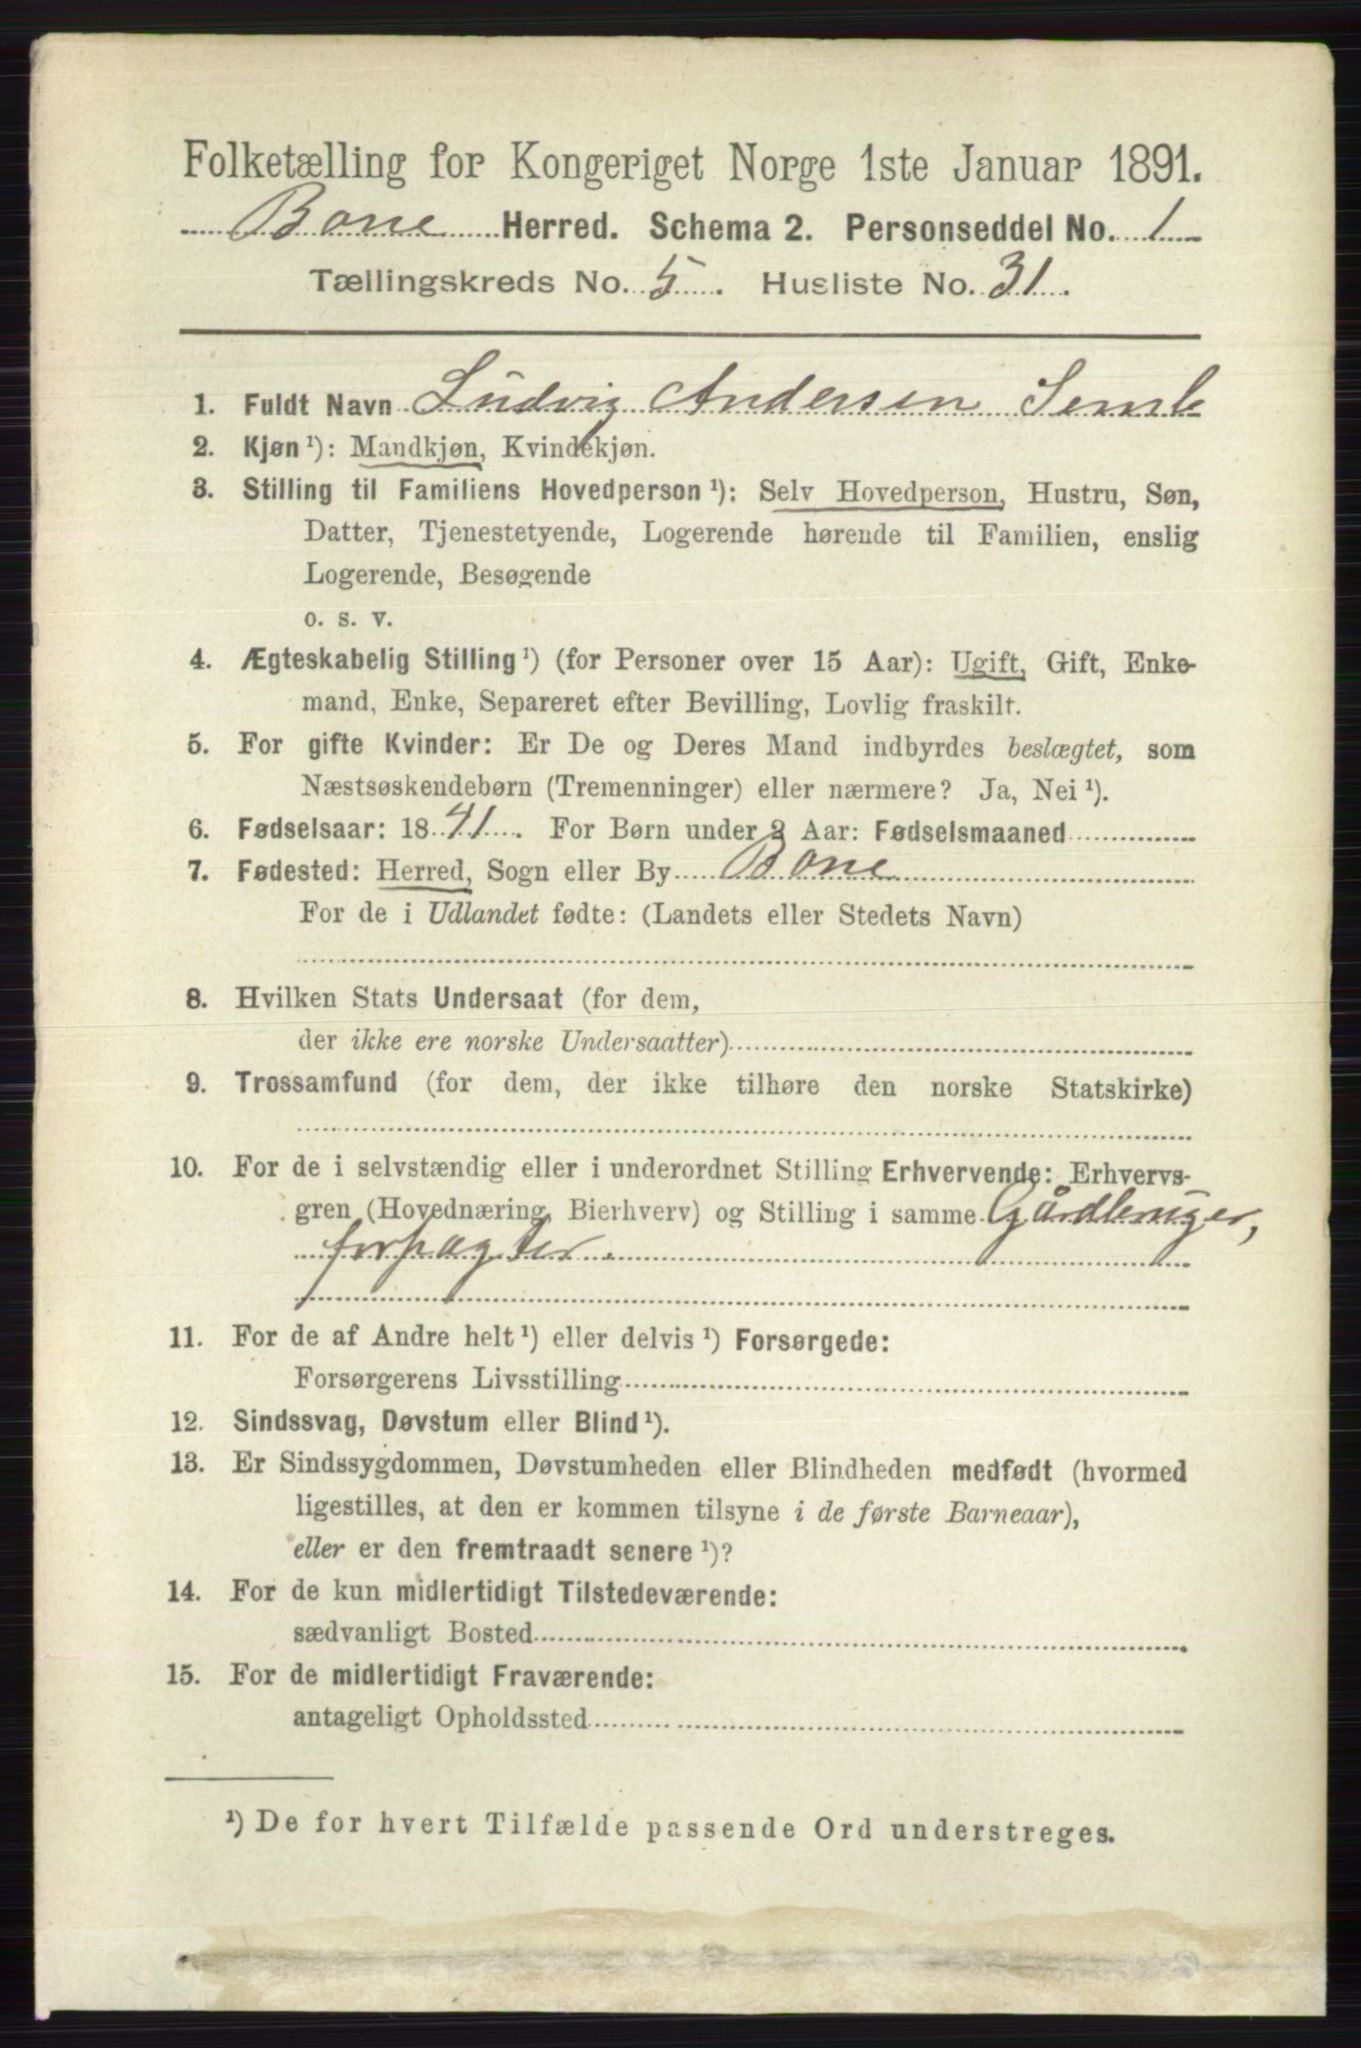 Folketælling for Kongeriget Norge 1ste Januar 1891.
Borre Herred. Schema 2. Personseddel No. 1
Tællingskreds No. 5. Husliste No. 31.
1. Fuldt Navn Ludvig Andersen Semb
2. Kjøn ¹): Mandkjøn, Kvindekjøn.
3. Stilling til Familiens Hovedperson ¹): Selv Hovedperson, Hustru, Søn,
Datter, Tjenestetyende, Logerende hørende til Familien, enslig
Logerende, Besøgende
o. s. v.
4. Ægteskabelig Stilling ¹) (for Personer over 15 Aar): Ugift, Gift, Enke-
mand, Enke, Separeret efter Bevilling, Lovlig fraskilt.
5. For gifte Kvinder: Er De og Deres Mand indbyrdes beslægtet, som
Næstsøskendebørn (Tremenninger) eller nærmere? Ja, Nei ¹).
6. Fødselsaar: 1841. For Børn under 2 Aar: Fødselsmaaned
7. Fødested: Herred, Sogn eller By Borre
For de i Udlandet fødte: (Landets eller Stedets Navn)
8. Hvilken Stats Undersaat (for dem,
der ikke ere norske Undersaatter)
9. Trossamfund (for dem, der ikke tilhøre den norske Statskirke)
10. For de i selvstændig eller i underordnet Stilling Erhvervende: Erhvervs-
gren (Hovednæring, Bierhverv) og Stilling i samme Gårdbruger,
forpagter.
11. For de af Andre helt ¹) eller delvis ¹) Forsørgede:
Forsørgerens Livsstilling
12. Sindssvag, Døvstum eller Blind ¹).
13. Er Sindssygdommen, Døvstumheden eller Blindheden medfødt (hvormed
ligestilles, at den er kommen tilsyne i de første Barneaar),
eller er den fremtraadt senere ¹)?
14. For de kun midlertidigt Tilstedeværende:
sædvanligt Bosted
15. For de midlertidigt Fraværende:
antageligt Opholdssted
¹) De for hvert Tilfælde passende Ord understreges.